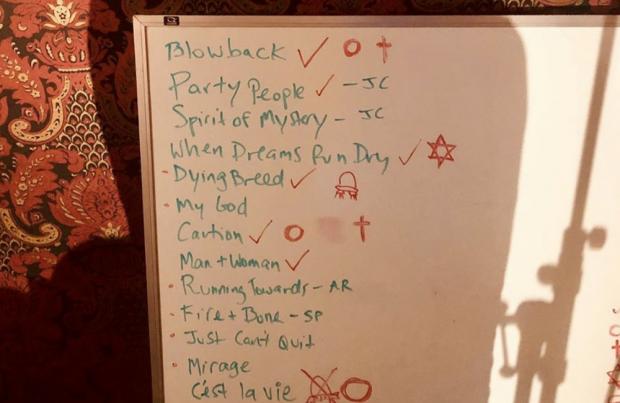 Blowback ✓ O †
Party People ✓ - JC
Spirit of Mystery - JC
When Dreams Run Dry ✓ ✡
· Dying Breed ✓
· My God
Caution ✓ O †
Man + Woman ✓
· Running Towards - AR
· Fire + Bone - SP
· Just Can't Quit
· Mirage
C'est la vie O